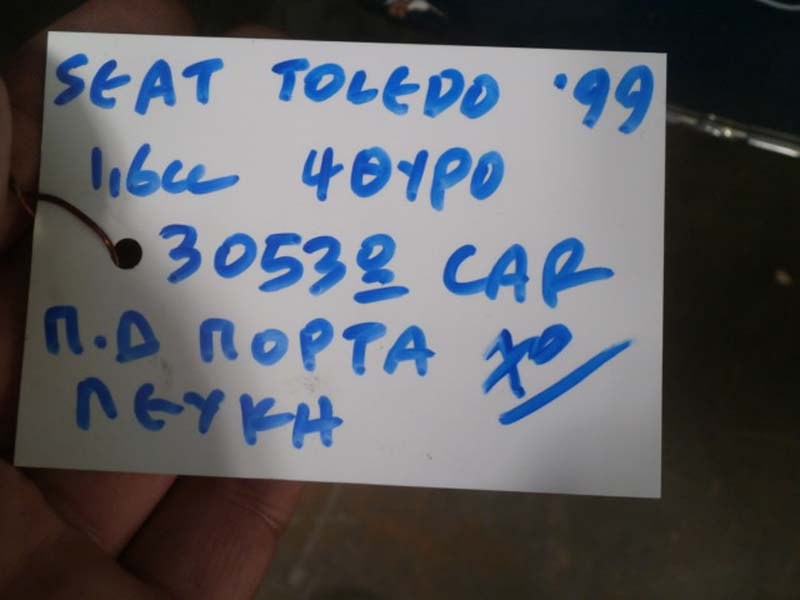 SEAT TOLEDO '99
1,6cc 4ΘΥΡΟ
3053 CAR
Π.Δ ΠΟΡΤΑ
ΛΕΥΚΗ